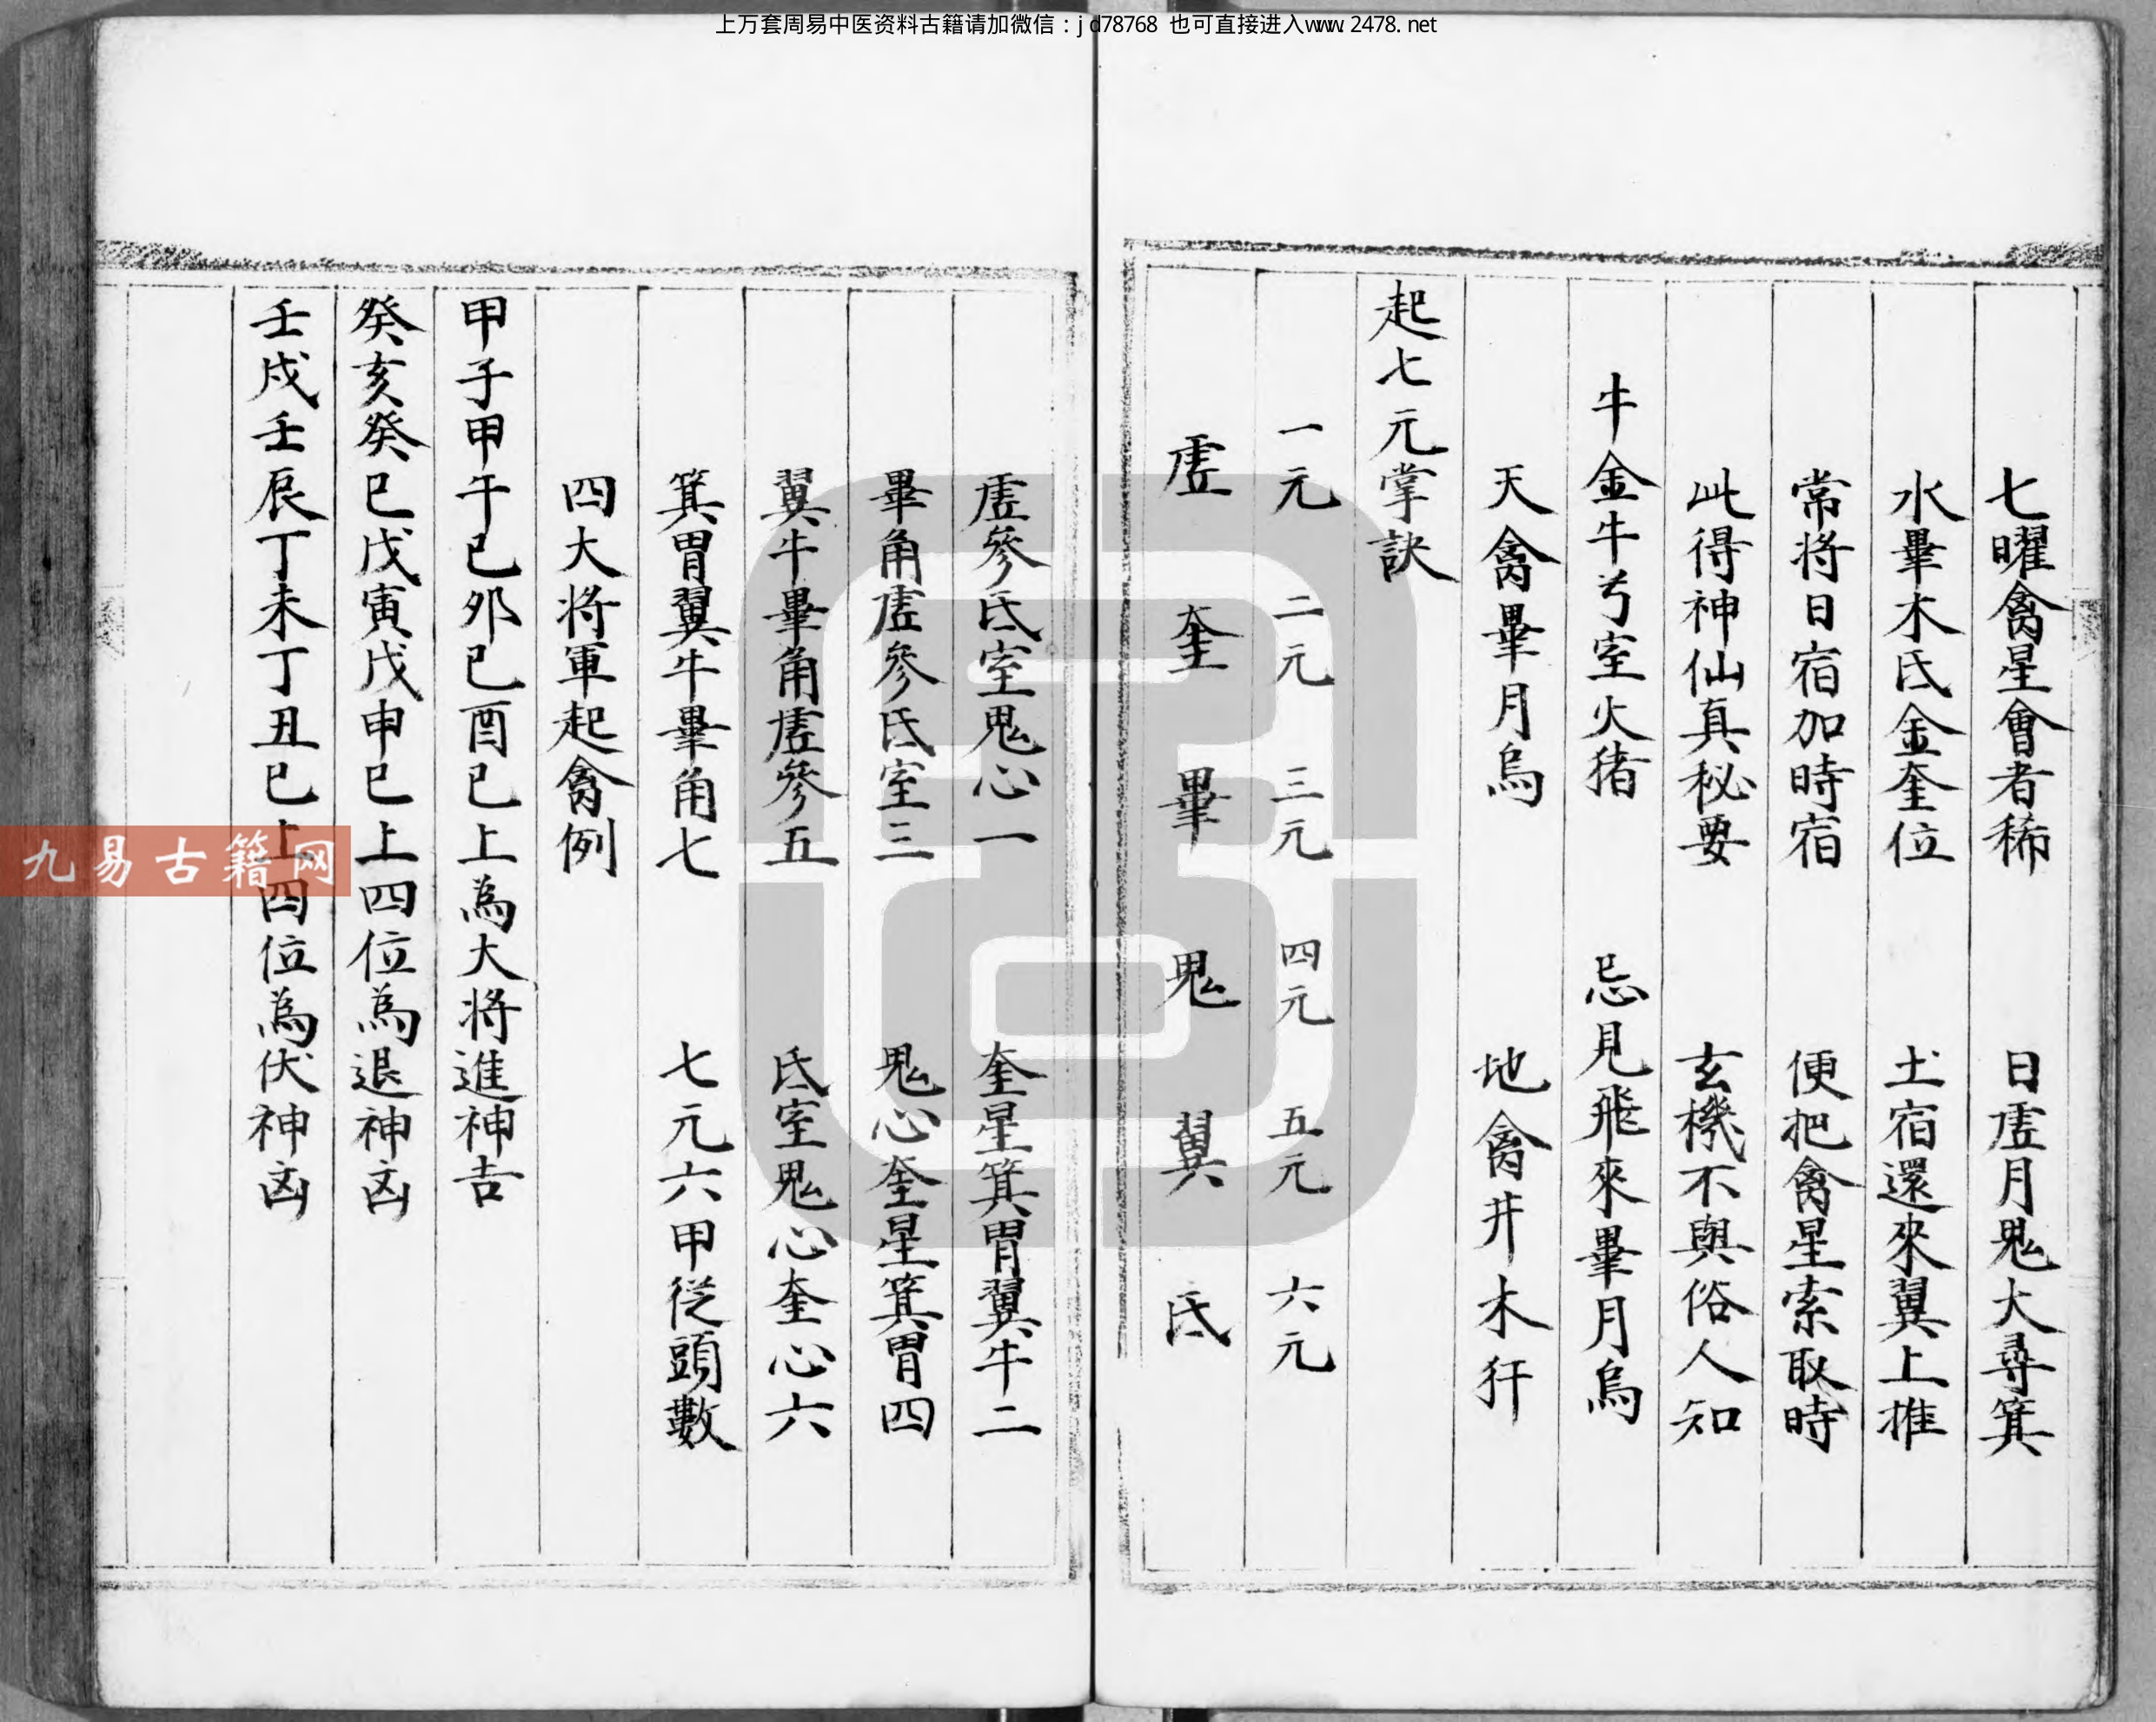 上万套周易中医资料古籍请加微信：jd78768 也可直接进入www.2478.net
七曜禽星會者稀 日虛月鬼火尋箕
水畢木氐金奎位 土宿還來翼上推
常将日宿加時宿 便把禽星索取時
此得神仙真秘要 玄機不與俗人知
牛金牛 室火猪 忌見飛來畢月烏
天禽畢月烏 地禽井木犴
起七元掌訣
一元 二元 三元 四元 五元 六元
虛 奎 畢 鬼 翼 氐
虛參氐室鬼心一 奎星箕胃翼牛二
畢角虛參氐室三 鬼心奎星箕胃四
翼牛畢角虛參五 氐室鬼心奎心六
箕胃翼牛畢角七 七元六甲從頭數
四大将軍起禽例
甲子甲午己夘己酉已上為大将進神吉
癸亥癸巳戊寅戊申已上四位為退神凶
壬戌壬辰丁未丁丑已上四位為伏神凶
九易古籍网